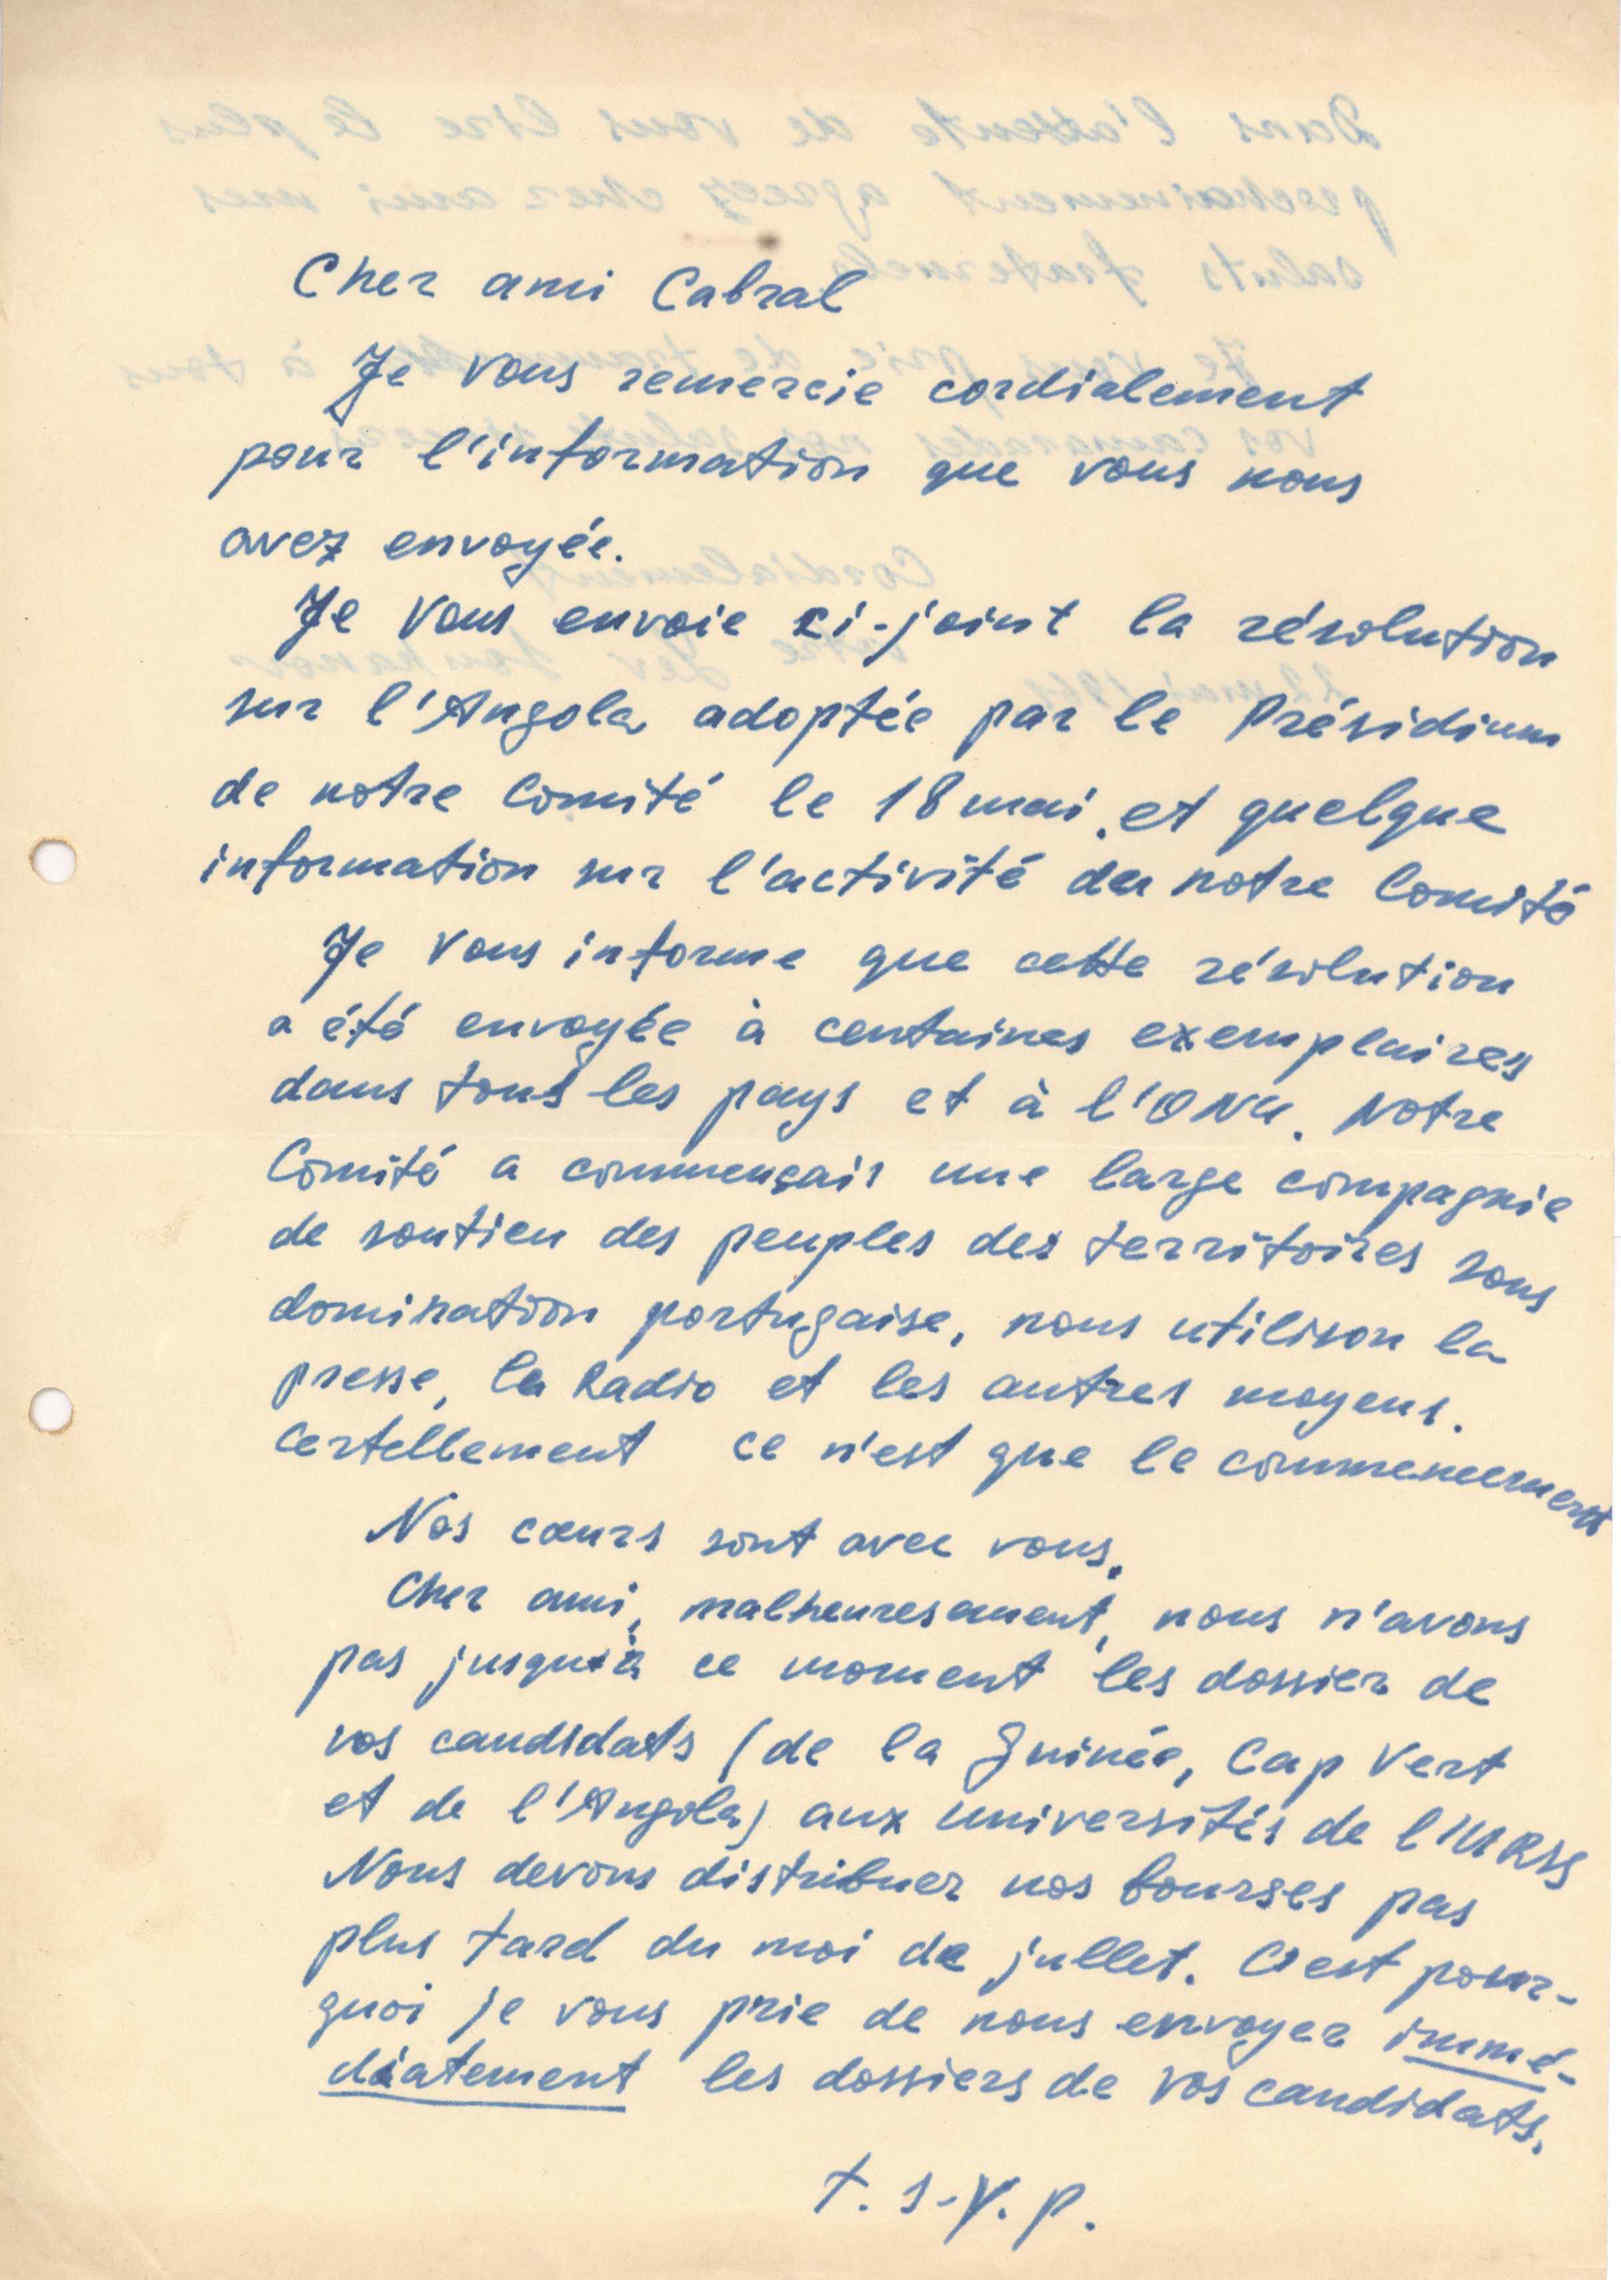 Cher ami Cabral
Je vous remercie cordialement
pour l'information que vous nous
avez envoyée.
Je vous envoie ci-joint la résolution
sur l'Angola adoptée par le Présidium
de notre Comité le 18 mai, et quelque
information sur l'activité de notre Comité
Je vous informe que cette résolution
a été envoyée à centaines exemplaires
dans tous les pays et à l'ONU. Notre
Comité a commençais une large compagnie
de soutien des peuples des territoires sous
domination portugaise, nous utilison la
presse, la Radio et les autres moyens.
Certellement ce n'est que le commencement
Nos cœurs sont avec vous.
Cher ami, malheuresament, nous n'avons
pas jusqu'à ce moment les dossier de
vos candidats (de la Guinée, Cap Vert
et de l'Angola) aux universités de l'URSS
Nous devons distribuer nos bourses pas
plus tard du moi de jullet. C'est pour-
quoi je vous prie de nous envoyer immé-
diatement les dossiers de vos candidats.
T.S.V.P.